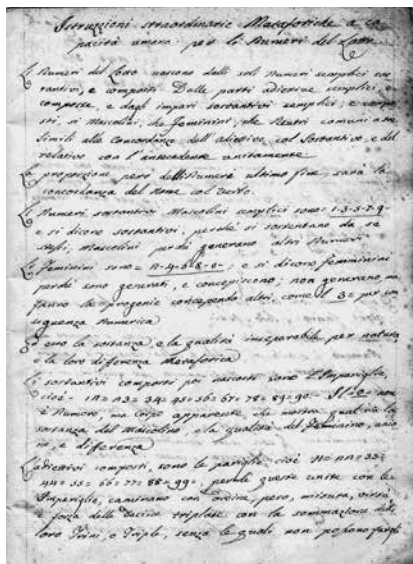 Istruzzioni straordinarie Metaforiche a ca
pacità umana per li Numeri del Lotto
Li Numeri del Lotto nascono dalli soli Numeri semplici sos
tantivi, e composti Dalle parti adiettive semplici, e
composte, e dagli impari sostantivi semplici, e compo
sti, si Mascolini, che Feminini, che Neutri comuni a tre
simili alle Concordanze dell'adiettivo col Sostantivo, e del
relativo con l'antecedente unitamente
A proporzione però dell Numero ultimo fine, sarà la
concordanza del Nome col Verbo.
Li Numeri sostantivi Mascolini semplici sono = 1-3-5-7-9
e si dicono sostantivi, perche si sostentano da se
stessi, Mascolini perche generano altri Numeri
Li Feminini sono = 2-4-6-8-0-, e si dicono femminini
perche sono generati, e concepiscono; non generano, ma
fanno la progenie concependo altri, come il 3 = per con
seguenza Numerica
la sostanza, e la qualità inseparabile per natura,
e la loro differenza Metaforica
Li sostantivi composti poi nascosti sono l'Impariglie,
cioè - 12 = 23 = 34 = 45 = 56 = 67 = 78 = 89 = 90 - Il = 0 = non
è Numero, ma corpo apparente che mostra qual sia la
sostanza del Mascolino, e la qualità del Feminino, unio
ne, e differenza
Li adiettivi composti, sono le pariglie, cioè 11 = 22 = 33 =
44 = 55 = 66 = 77 = 88 = 99 =, perche queste unite con le
Impariglie, caminano con ordine, peso, misura, virtù
e forza delle Decine triplate con la sommazione delli
loro Trini, o Triple, senza le quali non possono fargli